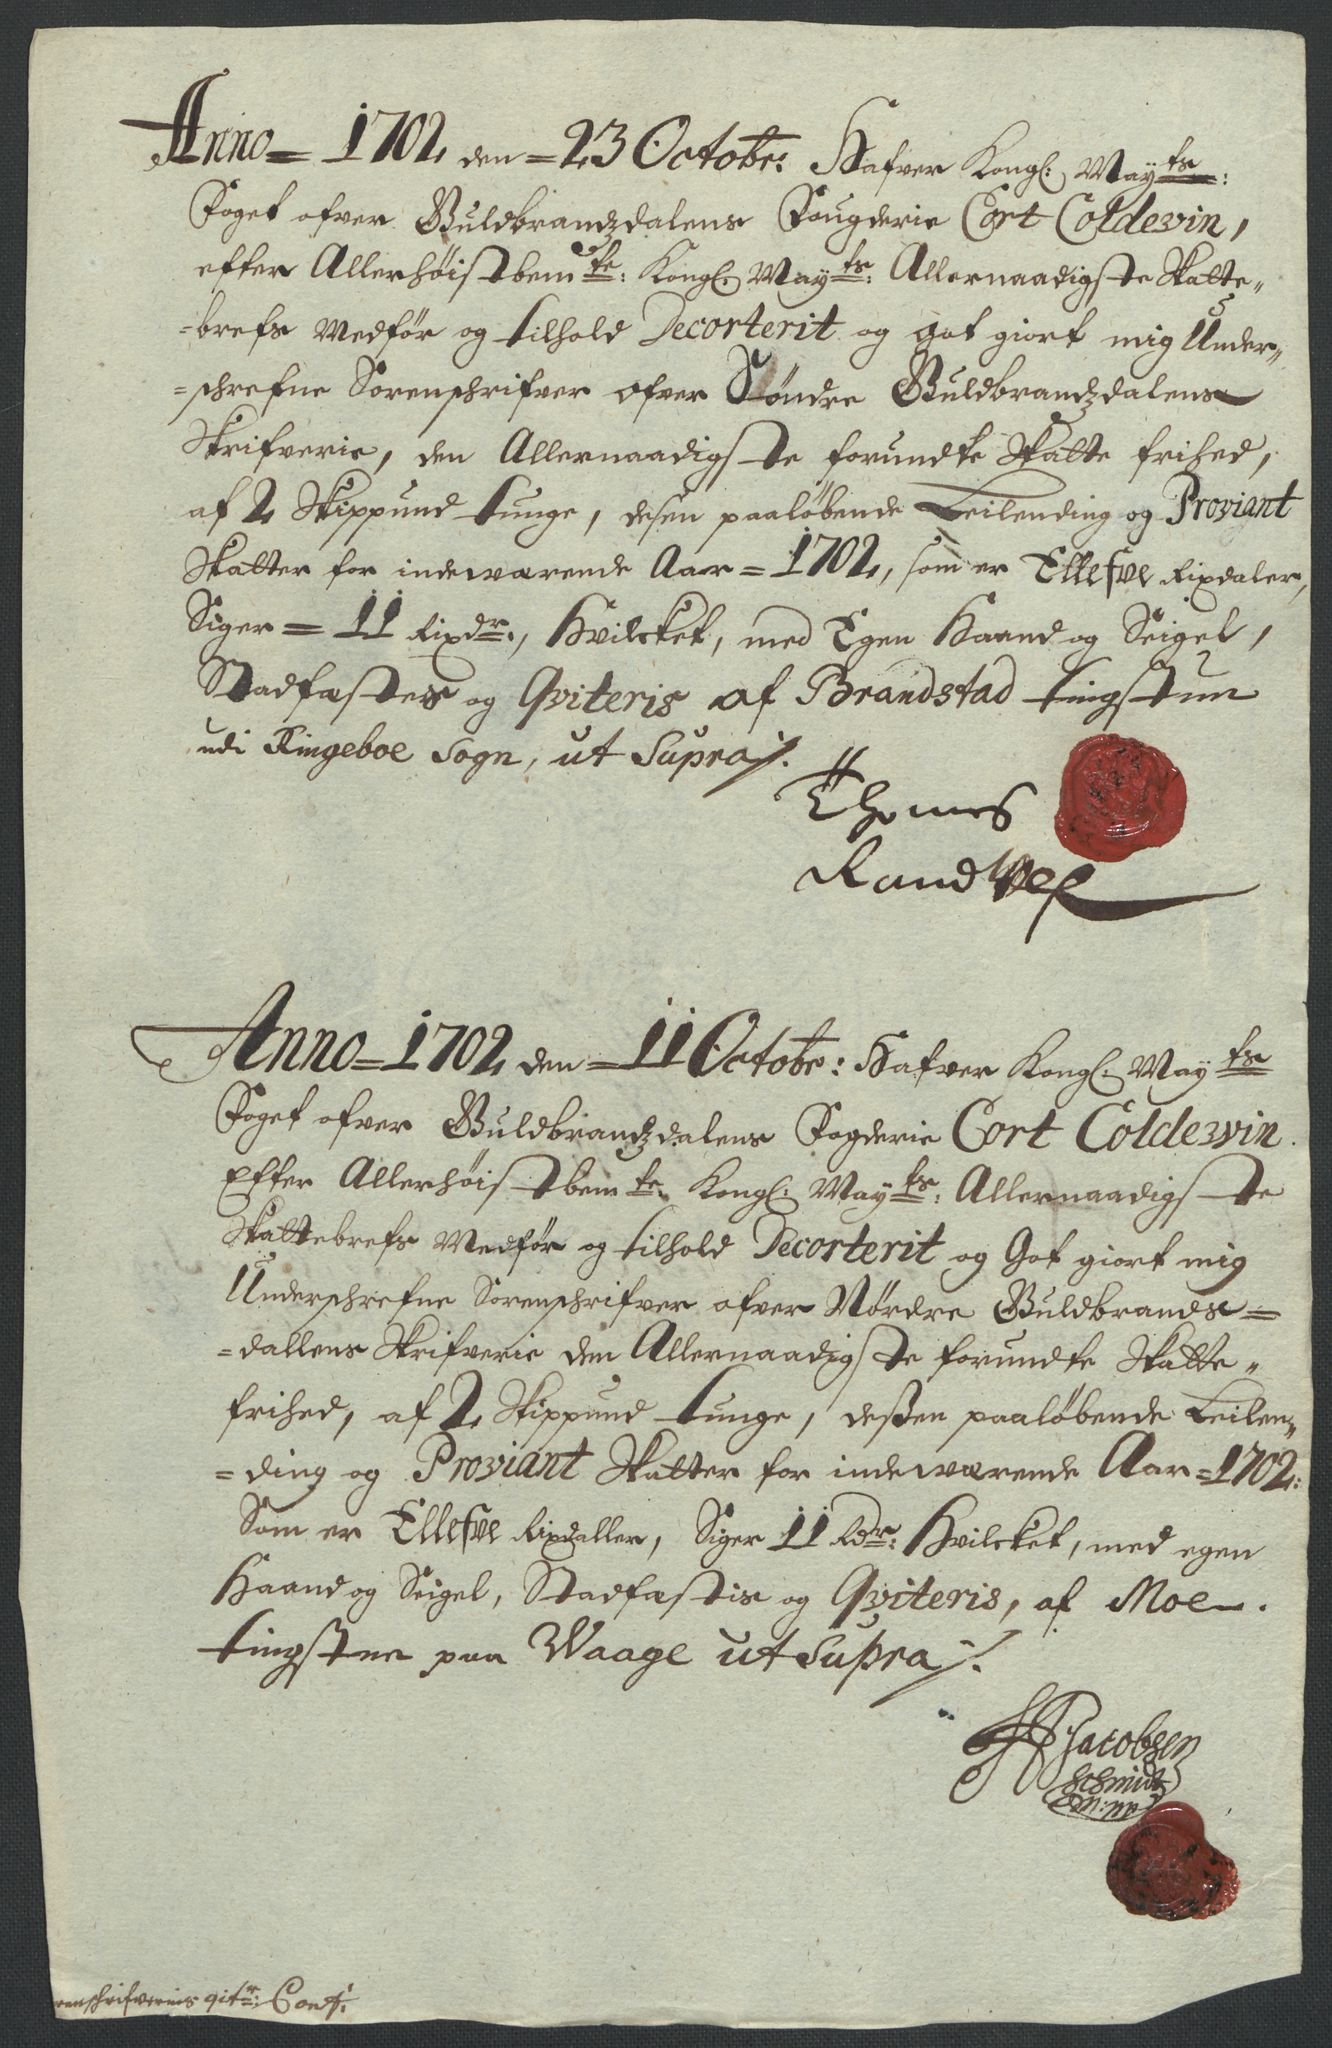 Anno = 1702 den = 23 Octobr: Hafver Kongl: Mayts:
Foget ofver Guldbrandzdalens Fougderie Cort Coldevin,
efter Allerhøistbemte: Kongl: Mayts: Allernaadigste Skatte„
=brefs Medfør og tilhold Decorterit og got giort mig Under„
=schrefne Sorenschrifver ofver Søndre Guldbrandzdalens
Skrifverie, den Allernaadigste forundte Skatte frihed,
af 2 Skippund tunge, desen paaløbende Leilending og Proviant
Skatter for indewærende Aar = 1702, som er Ellefve Rixdaler,
Siger = 11 Rixdr:, Hvilcket, med Egen Haand og Seigel,
Stadfæstes og Qviteris af Brandstad tingstue
udi Ringeboe Sogn, ut Supra /.
Thomes
Randulf
Anno = 1702 den = 11 Octobr: Hafver Kongl: Mayts
Foget ofver Guldbrandzdalens Fogderie Cort Coldewin.
Efter Allerhøistbemte Kongl: Mayts: Allernaadigste
Skattebrefs Medfør og tilhold Decorterit og Got giort mig
Underschrefne Sorenschrifver ofver Nørdre Guldbrands=
=dallens Skrifverie den Allernaadigste forundte Skatte„
frihed, af 2 Skippund tunge, deßen paaløbende Leilen„
=ding og Proviant Skatter for indewærende Aar = 1702:
Som er Ellefve Rixdaller, Siger 11 Rdr: Hvilcket, med egen
Haand og Seigel, Stadfæstis og Qviteris, af Moe.
tingstue paa Waage ut Supra /.
Jacobsen
Schmidt
m: m
renschrifvernis qitr: Cont: